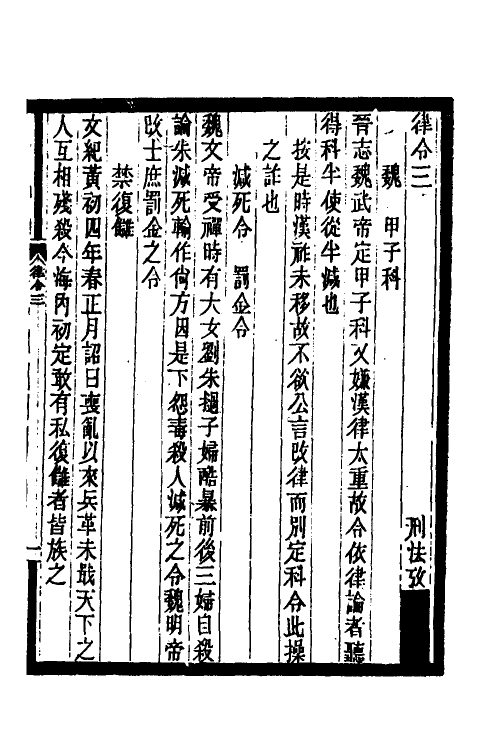 律令三　刑法攷
魏　甲子科
晉志魏武帝定甲子科又嫌漢律太重故令依律論者聽
得科半使從半減也
按是時漢祚未移故不欲公言改律而別定科令此操
之詐也
減死令　罰金令
魏文帝受禪時有大女劉朱撾子婦酷暴前後三婦自殺
論朱減死輸作尙方因是下怨毒殺人減死之令魏明帝
改士庶罰金之令
禁復讎
文紀黃初四年春正月詔曰喪亂以來兵革未戢天下之
人互相殘殺今海內初定敢有私復讎者皆族之
律令三
一